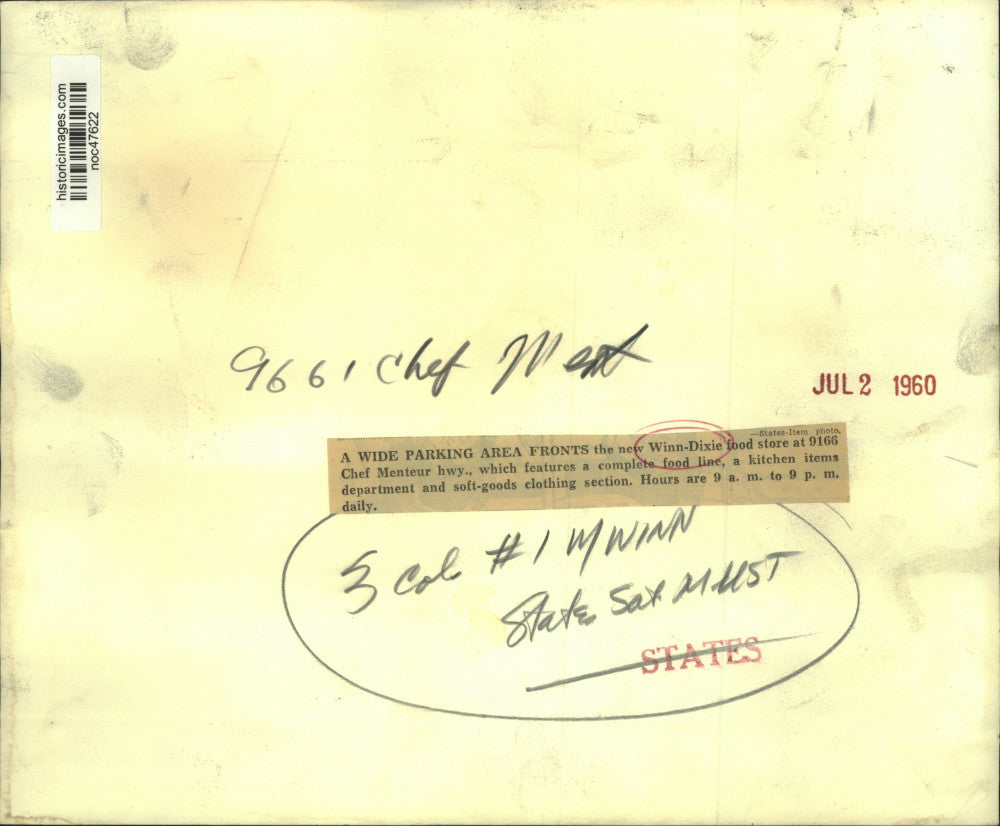 historicimages.com
noc47622
9661 Chef Ment
JUL 2 1960
—States-Item photo.
A WIDE PARKING AREA FRONTS the new Winn-Dixie food store at 9166
Chef Menteur hwy., which features a complete food line, a kitchen items
department and soft-goods clothing section. Hours are 9 a. m. to 9 p. m.
daily.
3 Col #1 W/WINN
States Sat MUST
STATES